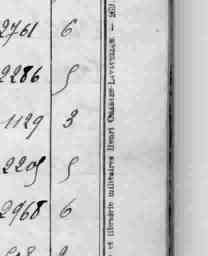 2761 6
2286 5
1129 3
2205 5
2968 6
et librairie militaires Henri CHARLES-LAVAUZELLE. —